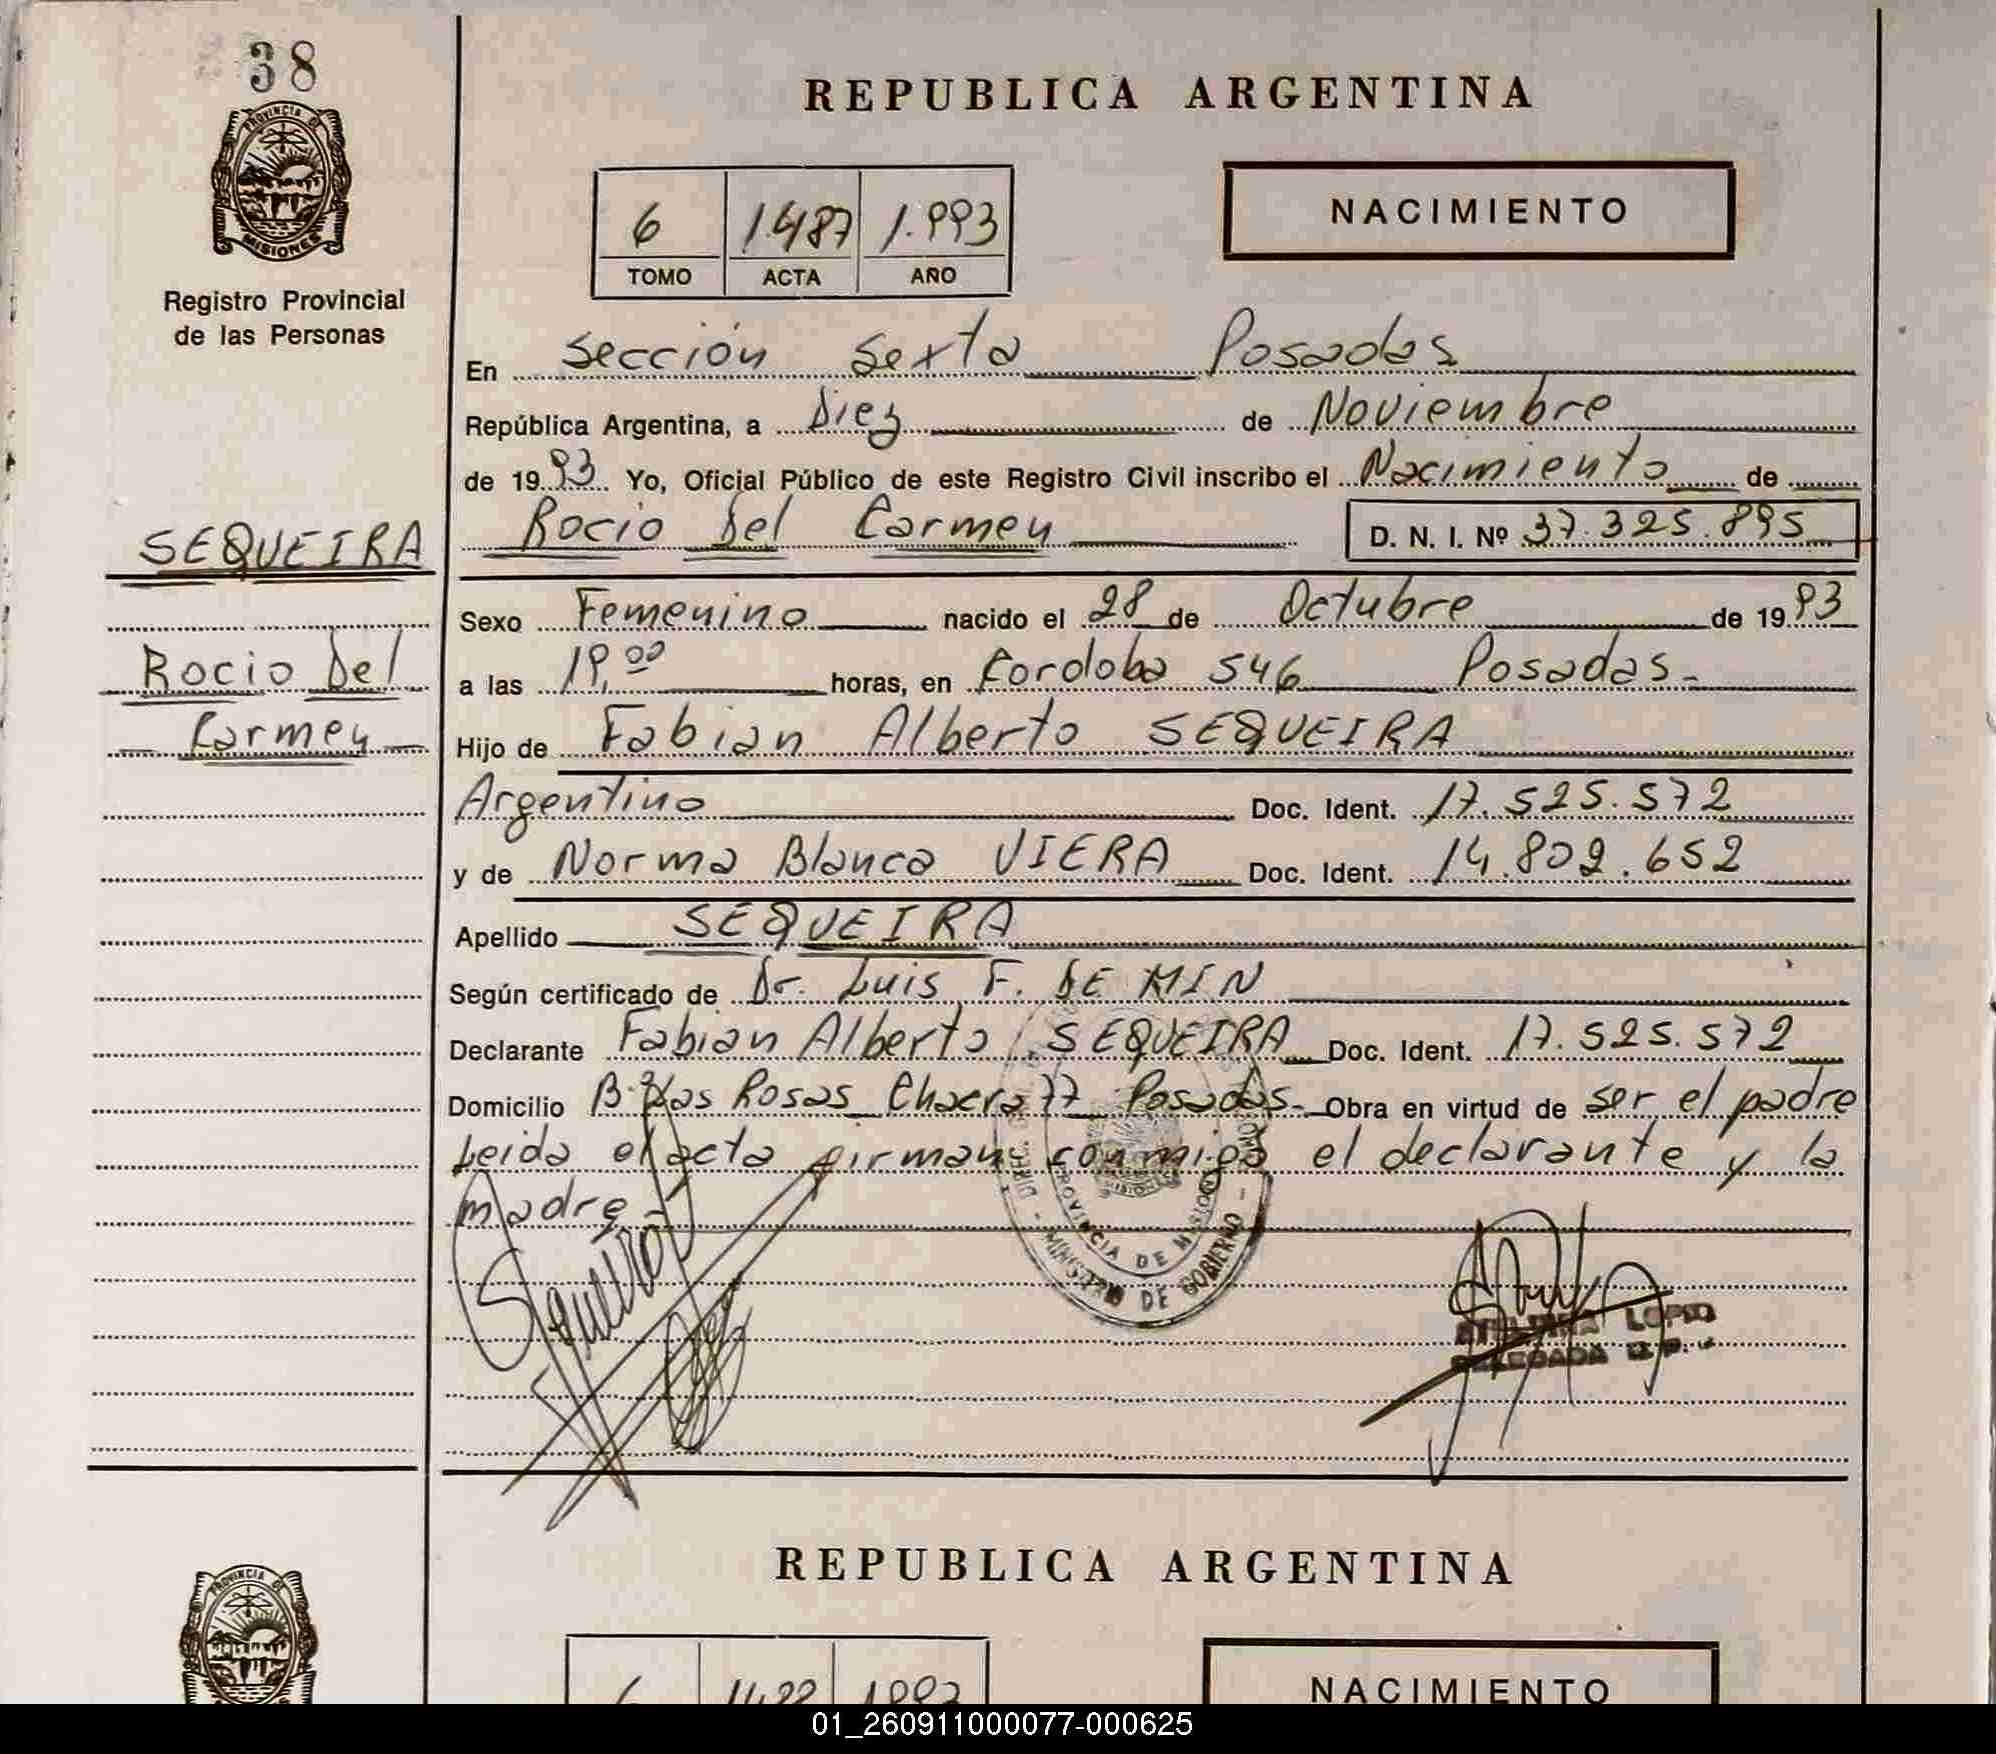 38
PROVINCIA DE
MISIONES
Registro Provincial
de las Personas
SEQUEIRA
Rocio Del
Carmen
REPUBLICA ARGENTINA
6 1.487 1.993
TOMO ACTA AÑO
NACIMIENTO
En Sección Sexta Posadas
República Argentina, a Diez de Noviembre
de 1993 Yo, Oficial Público de este Registro Civil inscribo el Nacimiento de
Rocio Del Carmen D. N. I. Nº 37.325.895
Sexo Femenino nacido el 28 de Octubre de 1993
a las 19,00 horas, en Cordoba 546 Posadas-
Hijo de Fabian Alberto SEQUEIRA
Argentino Doc. Ident. 17.525.572
y de Norma Blanca VIERA Doc. Ident. 14.802.652
Apellido SEQUEIRA
Según certificado de Dr. Luis F. DE MIN
Declarante Fabian Alberto SEQUEIRA Doc. Ident. 17.525.572
Domicilio Bº Las Rosas Chacra 77 Posadas- Obra en virtud de ser el padre
Leida el acta firman conmigo el declarante y la
madre-
PROVINCIA DE MISIONES
MINISTERIO DE GOBIERNO
Sequeira
REPUBLICA ARGENTINA
PROVINCIA DE
NACIMIENTO
01_260911000077-000625